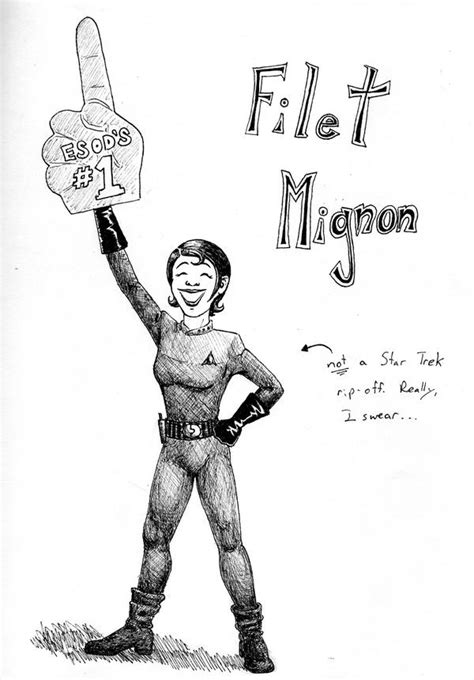 Filet
Mignon
ESOD'S
#1
not a Star Trek
rip-off. Really,
I swear...